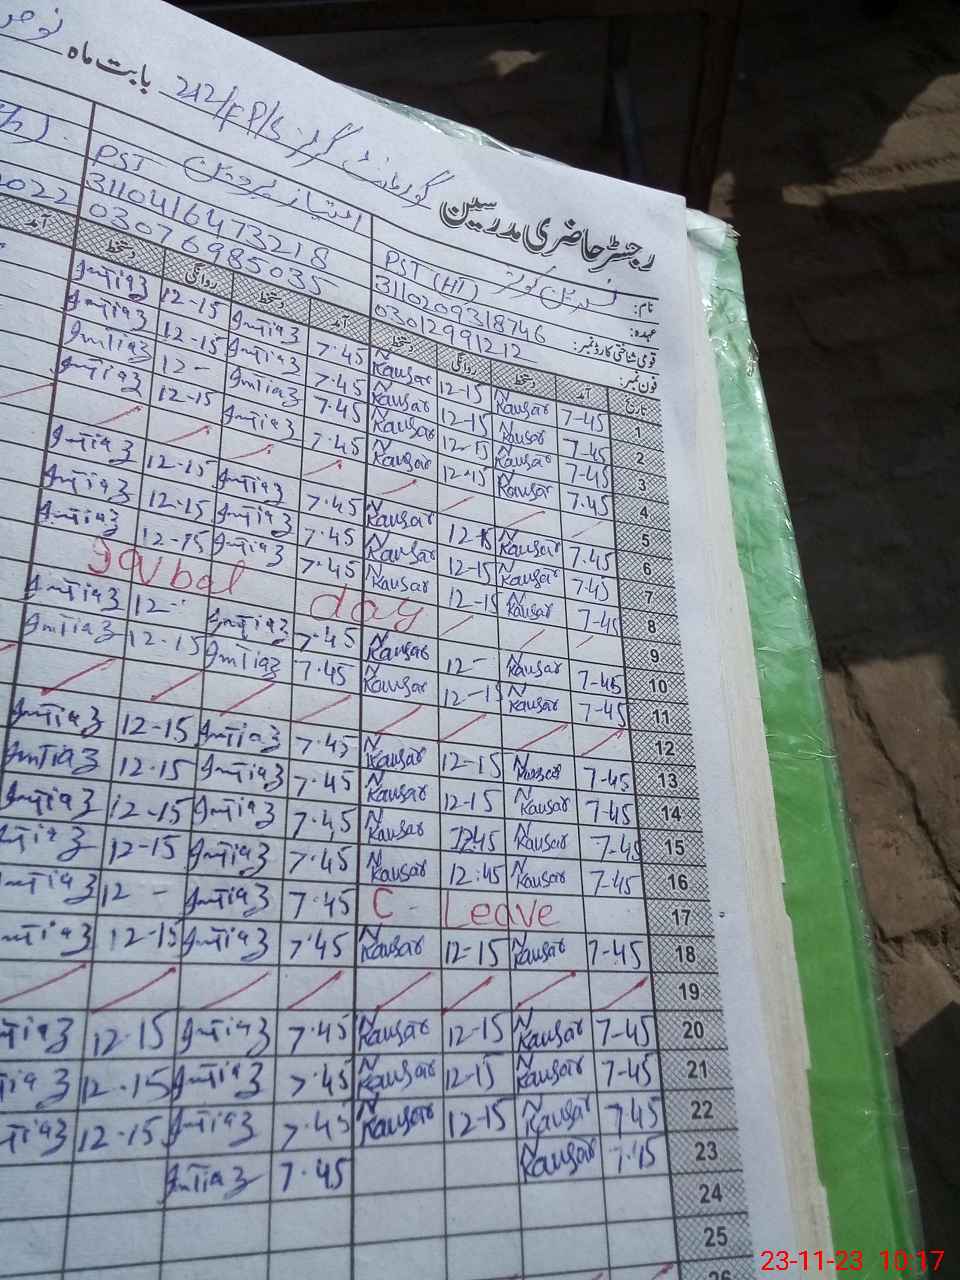 رجسٹر حاضری مدرسین گورنمنٹ گرلز 212/F P/S بابت ماہ
نام: نسرین کوثر امتیاز پروین
عہدہ: PST (HT) PST
قومی شناختی کارڈ نمبر: 3110209318746 3110416473218
فون نمبر: 03012991212 03076985035 2022
تاریخ آمد دستخط روانگی دستخط آمد دستخط روانگی دستخط آمد
1 7-45 N Kausar 12-15 N Kausar 7.45 Imtiaz 12-15 Imtiaz
2 7-45 N Kausar 12-15 N Kausar 7.45 Imtiaz 12-15 Imtiaz
3 7-45 N Kausar 12-15 N Kausar 7.45 Imtiaz 12- Imtiaz
4 7.45 N Kausar 12-15 N Kausar 7.45 Imtiaz 12-15 Imtiaz
5
6 7.45 N Kausar 12-15 N Kausar 7.45 Imtiaz 12-15 Imtiaz
7 7-45 N Kausar 12-15 N Kausar 7.45 Imtiaz 12-15 Imtiaz
8 7-45 N Kausar 12-15 N Kausar 7.45 Imtiaz 12-15 Imtiaz
9 Iqbal day
10 7-45 N Kausar 12- N Kausar 7-45 Imtiaz 12- Imtiaz
11 7-45 N Kausar 12-15 N Kausar 7.45 Imtiaz 12-15 Imtiaz
12
13 7-45 N Kausar 12-15 N Kausar 7.45 Imtiaz 12-15 Imtiaz
14 7-45 N Kausar 12-15 N Kausar 7.45 Imtiaz 12-15 Imtiaz
15 7-45 N Kausar 12.45 N Kausar 7.45 Imtiaz 12-15 Imtiaz
16 7-45 N Kausar 12:45 N Kausar 7.45 Imtiaz 12-15 Imtiaz
17 C - Leave 7.45 Imtiaz 12 - Imtiaz
18 7-45 N Kausar 12-15 N Kausar 7.45 Imtiaz 12-15 Imtiaz
19
20 7-45 N Kausar 12-15 N Kausar 7.45 Imtiaz 12-15 Imtiaz
21 7-45 N Kausar 12-15 N Kausar 7.45 Imtiaz 12-15 Imtiaz
22 7-45 N Kausar 12-15 N Kausar 7.45 Imtiaz 12-15 Imtiaz
23 7.45 Kausar 7.45 Imtiaz
24
25
26
23-11-23 10:17